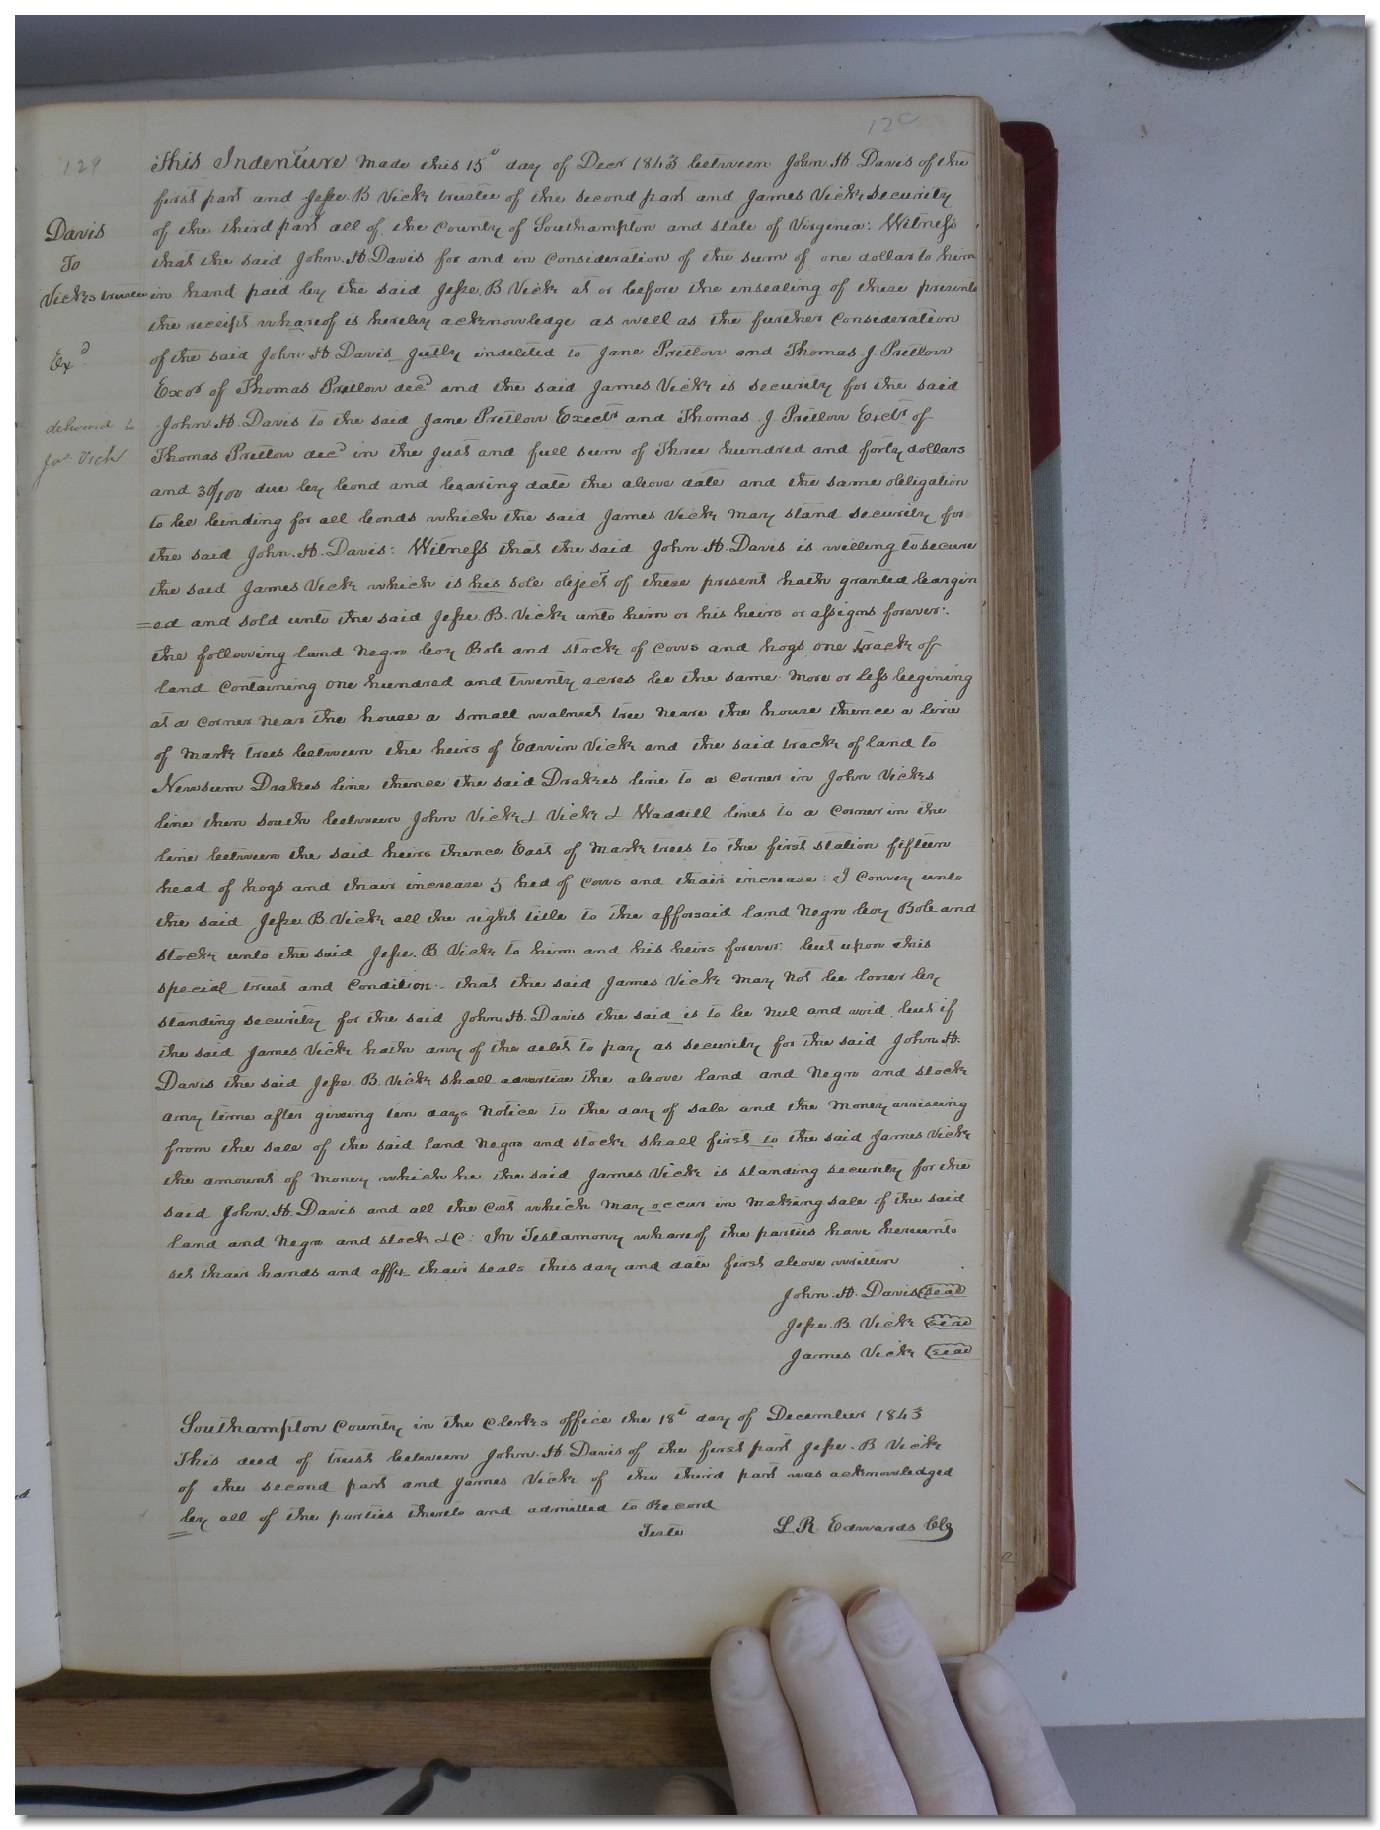 129
Davis
To
Vicks trustee
Exd
delivered to
Jas Vick
This Indenture made this 15th day of Decr 1843 between John. H. Davis of the
first part and Jesse. B Vick trustee of the second part and James Vick Security
of the third part all of the County of Southampton and state of Virginia: Witness
that the said John. H Davis for and in Consideration of the sum of one dollar to him
in hand paid by the said Jesse. B Vick at or before the insealing of these presents
the receipt whareof is hereby acknowledge as well as the further Consideration
of the said John. H. Davis Jutly indebted to Jane Pretlow and Thomas. J. Pretlow
Exors of Thomas Pretlow decd and the said James Vick is security for the said
John. H. Davis to the said Jane Pretlow Exectr and Thomas. J Pretlow Exctr of
Thomas Pretlow decd in the just and full sum of Three hundred and forty dollars
and 30/100 due by bond and bearing date the above date and the same obligation
to be binding for all bonds which the said James Vick may stand security for
the said John. H. Davis: Witness that the said John. H. Davis is willing to secure
the said James Vick which is his sole object of these present hath granted beargin
=ed and sold unto the said Jesse. B. Vick unto him or his heirs or assigns forever:
the following land Negro boy Bob and stock of cows and hogs one track of
land Containing one hundred and twenty acres be the same More or less begining
at a corner near the house a small walnut tree neare the house thence a line
of mark trees between the heirs of Edwin Vick and the said track of land to
Newsum Drakes line thence the said Drakes line to a corner in John Vicks
line then south between John Vick & Vick & Waddill lines to a Corner in the
line between the said heirs thence East of mark trees to the first station fifteen
head of hogs and thair increase 5 hed of cows and thair increase: I Convey unto
the said Jesse B. Vick all the right title to the afforsaid land Negro boy Bob and
stock unto the said Jesse. B Vick to him and his heirs forever: but upon this
special trust and Condition. that the said James Vick may not be looser by
standing security for the said John. H. Davis the said is to be Nul and void but if
the said James Vick hath any of the debt to pay as security for the said John. H.
Davis the said Jesse B. Vick shall advertise the above land and Negro and stock
any time after giveing ten days Notice to the day of sale and the Money arriseing
from the sale of the said land Negro and stock shall first to the said James Vick
the amount of Money which he the said James Vick is standing security for the
said John. H. Davis and all the Cost which may occur in making sale of the said
land and Negro and stock &C: In Testamony whareof the parties have hereunto
set thair hands and affix thair seals this day and date first above written
John. H. Davis seal
Jesse. B Vick seal
James Vick seal
Southampton County in the Clerks office the 18th day of December 1843
This deed of trust between John. H. Davis of the first part Jesse. B Vick
of the second part and James Vick of the third part was acknowledged
by all of the parties thereto and admitted to Record
Teste L. R. Edwards Clk